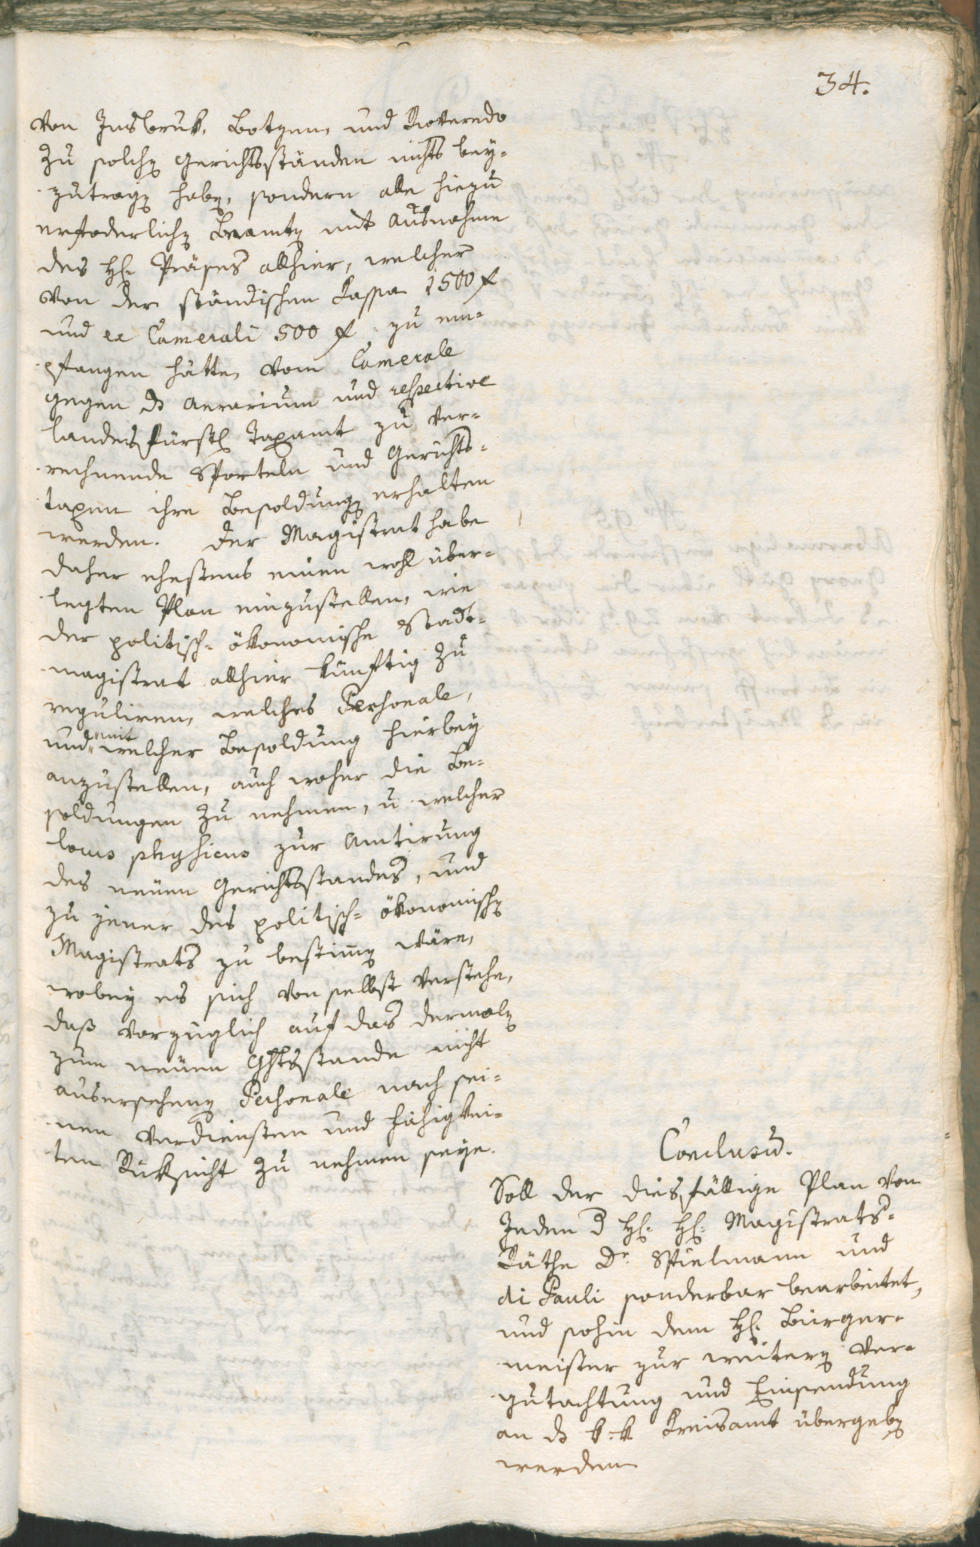 34.
von Insbruk, Botzen, und Roveredo
zu solchen Gerichtsständen nichts bey-
zutragen haben, sondern alle hiezu
erfoderlichen Beamten mit Ausnahme
des H: Präses allhier, welcher
von der ständischen Cassa 1500 f
und ex Camerali 500 f. zu em-
pfangen hätte, vom Camerale
gegen dz aerarium und respective
landesfürstl Taxamt zu ver-
rechnende Sporteln und Gerichts-
taxen ihre Besoldungen erhalten
werden. Der Magistrat habe
daher ehestens einen wohl über-
legten Plan einzustellen, wie
der politisch- ökonomische Stadt-
magistrat allhier künftig zu
reguliren, welches Personale,
und mit welcher Besoldung hierbey
anzustellen, auch woher die Be-
soldungen zu nehmen, u welcher
locus physicus zur Amtirung
des neüen Gerichtsstandes, und
zu jener des politisch- ökonomischen
Magistrats zu bestimen wäre,
wobey es sich von selbst verstehe,
daß vorzüglich auf das dermalen
zum neüen Ghtsstande nicht
ausersehene Personale nach sei-
nen Verdiensten und Fähigkei-
ten Ruksicht zu nehmen seye.
Conclusu.
Soll der diesfällige Plan von
Jedem d H: H: Magistrats-
Räthe Dr Spielmann und
di Pauli sonderbar bearbeitet,
und sohin dem H: Bürger-
meister zur weitern Ver-
gutachtung und Einsendung
an dz k: k Kreisamt übergeben
werden